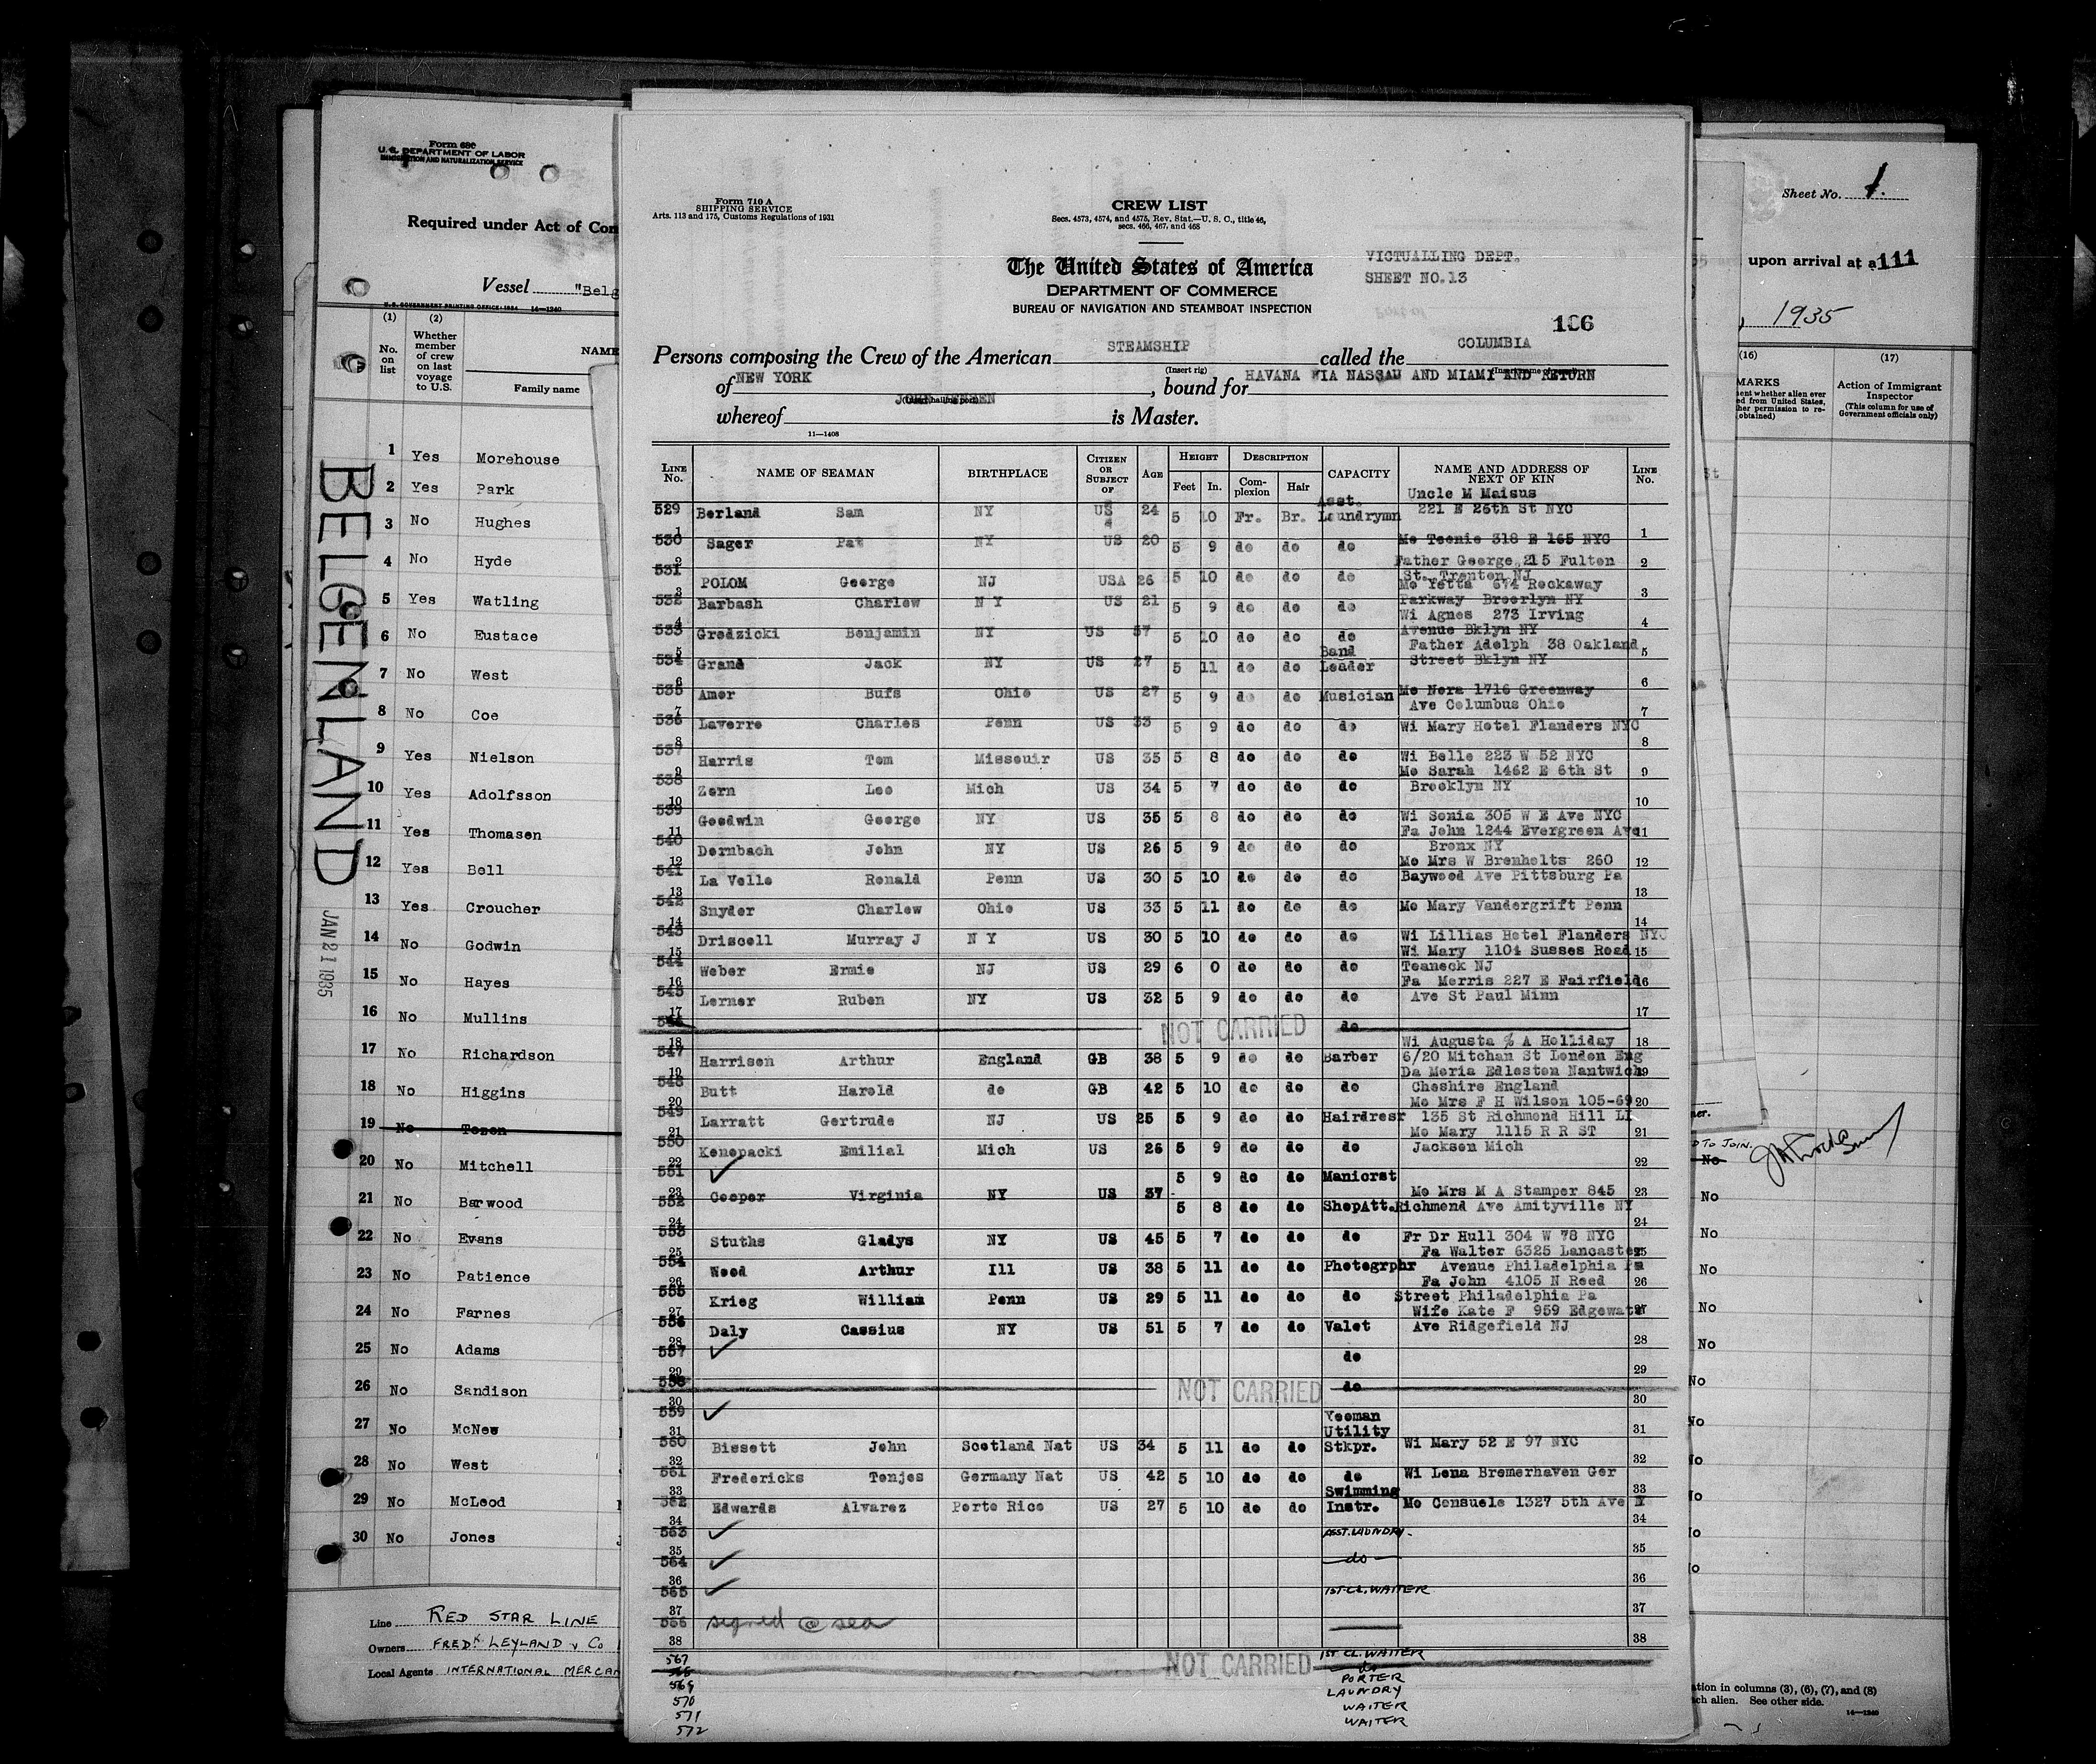 Form 680
U.S. DEPARTMENT OF LABOR
IMMIGRATION AND NATURALIZATION SERVICE
Required under Act of Con
Vessel "Belg
U.S. GOVERNMENT PRINTING OFFICE: 1934 14—1240
(1) (2)
No. on list
Whether member of crew on last voyage to U.S.
NAME
Family name
1 Yes Morehouse
2 Yes Park
3 No Hughes
4 No Hyde
5 Yes Watling
6 No Eustace
7 No West
8 No Coe
9 Yes Nielson
10 Yes Adolfsson
11 Yes Thomasen
12 Yes Bell
13 Yes Croucher
14 No Godwin
15 No Hayes
16 No Mullins
17 No Richardson
18 No Higgins
19 No Tozon
20 No Mitchell
21 No Barwood
22 No Evans
23 No Patience
24 No Farnes
25 No Adams
26 No Sandison
27 No McNew
28 No West
29 No McLeod
30 No Jones
BELGENLAND
JAN 21 1935
Line RED STAR LINE
Owners FREDK LEYLAND & Co
Local Agents INTERNATIONAL MERCAN
Form 710 A
SHIPPING SERVICE
Arts. 113 and 175, Customs Regulations of 1931
CREW LIST
Secs. 4573, 4574, and 4575, Rev. Stat.—U. S. C., title 46,
secs. 466, 467, and 468
The United States of America
DEPARTMENT OF COMMERCE
BUREAU OF NAVIGATION AND STEAMBOAT INSPECTION
VICTUALLING DEPT.
SHEET NO.13
106
Persons composing the Crew of the American STEAMSHIP called the COLUMBIA
(Insert rig)
of NEW YORK, bound for HAVANA VIA NASSAU AND MIAMI AND RETURN
whereof JOHN JENSEN is Master.
11—1408
LINE No. NAME OF SEAMAN BIRTHPLACE CITIZEN OR SUBJECT OF AGE HEIGHT Feet In. DESCRIPTION Complexion Hair CAPACITY NAME AND ADDRESS OF NEXT OF KIN LINE No.
Asst. Uncle M Maisus
529 Berland Sam NY US 24 5 10 Fr. Br. Laundrymn 221 E 25th St NYC 1
530 Sager Pat NY US 20 5 9 do do do Mo Teenie 318 E 165 NYC 2
Father George 215 Fulton
531 POLOM George NJ USA 26 5 10 do do do St. Trenton NJ 3
Mo Yetta 674 Rockaway
532 Barbash Charlew N Y US 21 5 9 do do do Parkway Broorlyn NY 4
Wi Agnes 273 Irving
533 Gredzicki Benjamin NY US 57 5 10 do do do Avenue Bklyn NY 5
Band Father Adolph 38 Oakland
534 Grand Jack NY US 27 5 11 do do Leader Street Bklyn NY 6
535 Amor Bufs Ohio US 27 5 9 do do Musician Mo Nora 1716 Greenway 7
Ave Columbus Ohio
536 Laverre Charles Penn US 33 5 9 do do do Wi Mary Hotel Flanders NYC 8
537 Harris Tom Missouir US 35 5 8 do do do Wi Belle 223 W 52 NYC 9
Mo Sarah 1462 E 6th St
538 Zorn Leo Mich US 34 5 7 do do do Brooklyn NY 10
539 Goodwin George NY US 35 5 8 do do do Wi Sonia 305 W E Ave NYC 11
Fa John 1244 Evergreen Ave
540 Dornbach John NY US 26 5 9 do do do Bronx NY 12
Mo Mrs W Brenholts 260
541 La Velle Ronald Penn US 30 5 10 do do do Baywood Ave Pittsburg Pa 13
542 Snyder Charlew Ohio US 33 5 11 do do do Mo Mary Vandergrift Penn 14
543 Driscoll Murray J N Y US 30 5 10 do do do Wi Lillias Hotel Flanders NYC 15
Wi Mary 1104 Susses Road
544 Weber Ernie NJ US 29 6 0 do do do Teaneck NJ 16
Fa Morris 227 E Fairfield
545 Lerner Ruben NY US 32 5 9 do do do Ave St Paul Minn 17
546 NOT CARRIED do 18
Wi Augusta % A Holliday
547 Harrison Arthur England GB 38 5 9 do do Barber 6/20 Mitchan St London Eng 19
Da Meria Edleston Nantwich
548 Butt Harold do GB 42 5 10 do do do Cheshire England 20
Mo Mrs F H Wilson 105-69
549 Larratt Gertrude NJ US 25 5 9 do do Hairdresr 135 St Richmond Hill LI 21
Mo Mary 1115 R R ST
550 Konopacki Emilial Mich US 26 5 9 do do do Jackson Mich 22
551 ✓ 5 9 do do Manicrst 23
Mo Mrs M A Stamper 845
552 Cooper Virginia NY US 37 5 8 do do ShopAtt. Richmond Ave Amityville NY 24
553 Stuths Gladys NY US 45 5 7 do do do Fr Dr Hull 304 W 78 NYC 25
Fa Walter 6325 Lancaster
554 Wood Arthur Ill US 38 5 11 do do Photogrphr Avenue Philadelphia Pa 26
Fa John 4105 N Reed
555 Krieg William Penn US 29 5 11 do do do Street Philadelphia Pa 27
Wife Kate F 959 Edgewater
556 Daly Cassius NY US 51 5 7 do do Valet Ave Ridgefield NJ 28
557 ✓ do 29
558 NOT CARRIED do 30
559 ✓ Yeoman 31
Utility
560 Bissett John Scotland Nat US 34 5 11 do do Stkpr. Wi Mary 52 E 97 NYC 32
561 Fredericks Tonjes Germany Nat US 42 5 10 do do do Wi Lena Bremerhaven Ger 33
Swimming
562 Edwards Alvarez Porto Rico US 27 5 10 do do Instr. Mo Consuelo 1327 5th Ave N 34
563 ✓ ASST. LAUNDRY. 35
564 ✓ do 36
565 ✓ 1ST CL. WAITER 37
566 signed @ sea 38
567 1ST CL. WAITER
568 NOT CARRIED do
569 PORTER
570 LAUNDRY
571 WAITER
572 WAITER
Sheet No. 1.
upon arrival at a 111
, 1935
(16) (17)
MARKS
Action of Immigrant Inspector
(This column for use of Government officials only)
ent whether alien ever
ed from United States,
her permission to re-
obtained)
D TO JOIN.
No
No
No
No
No
No
No
No
ation in columns (3), (6), (7), and (8)
ch alien. See other side.
14—1240